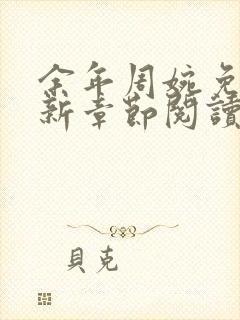 余年周婉免
新章節閱讀
貝克